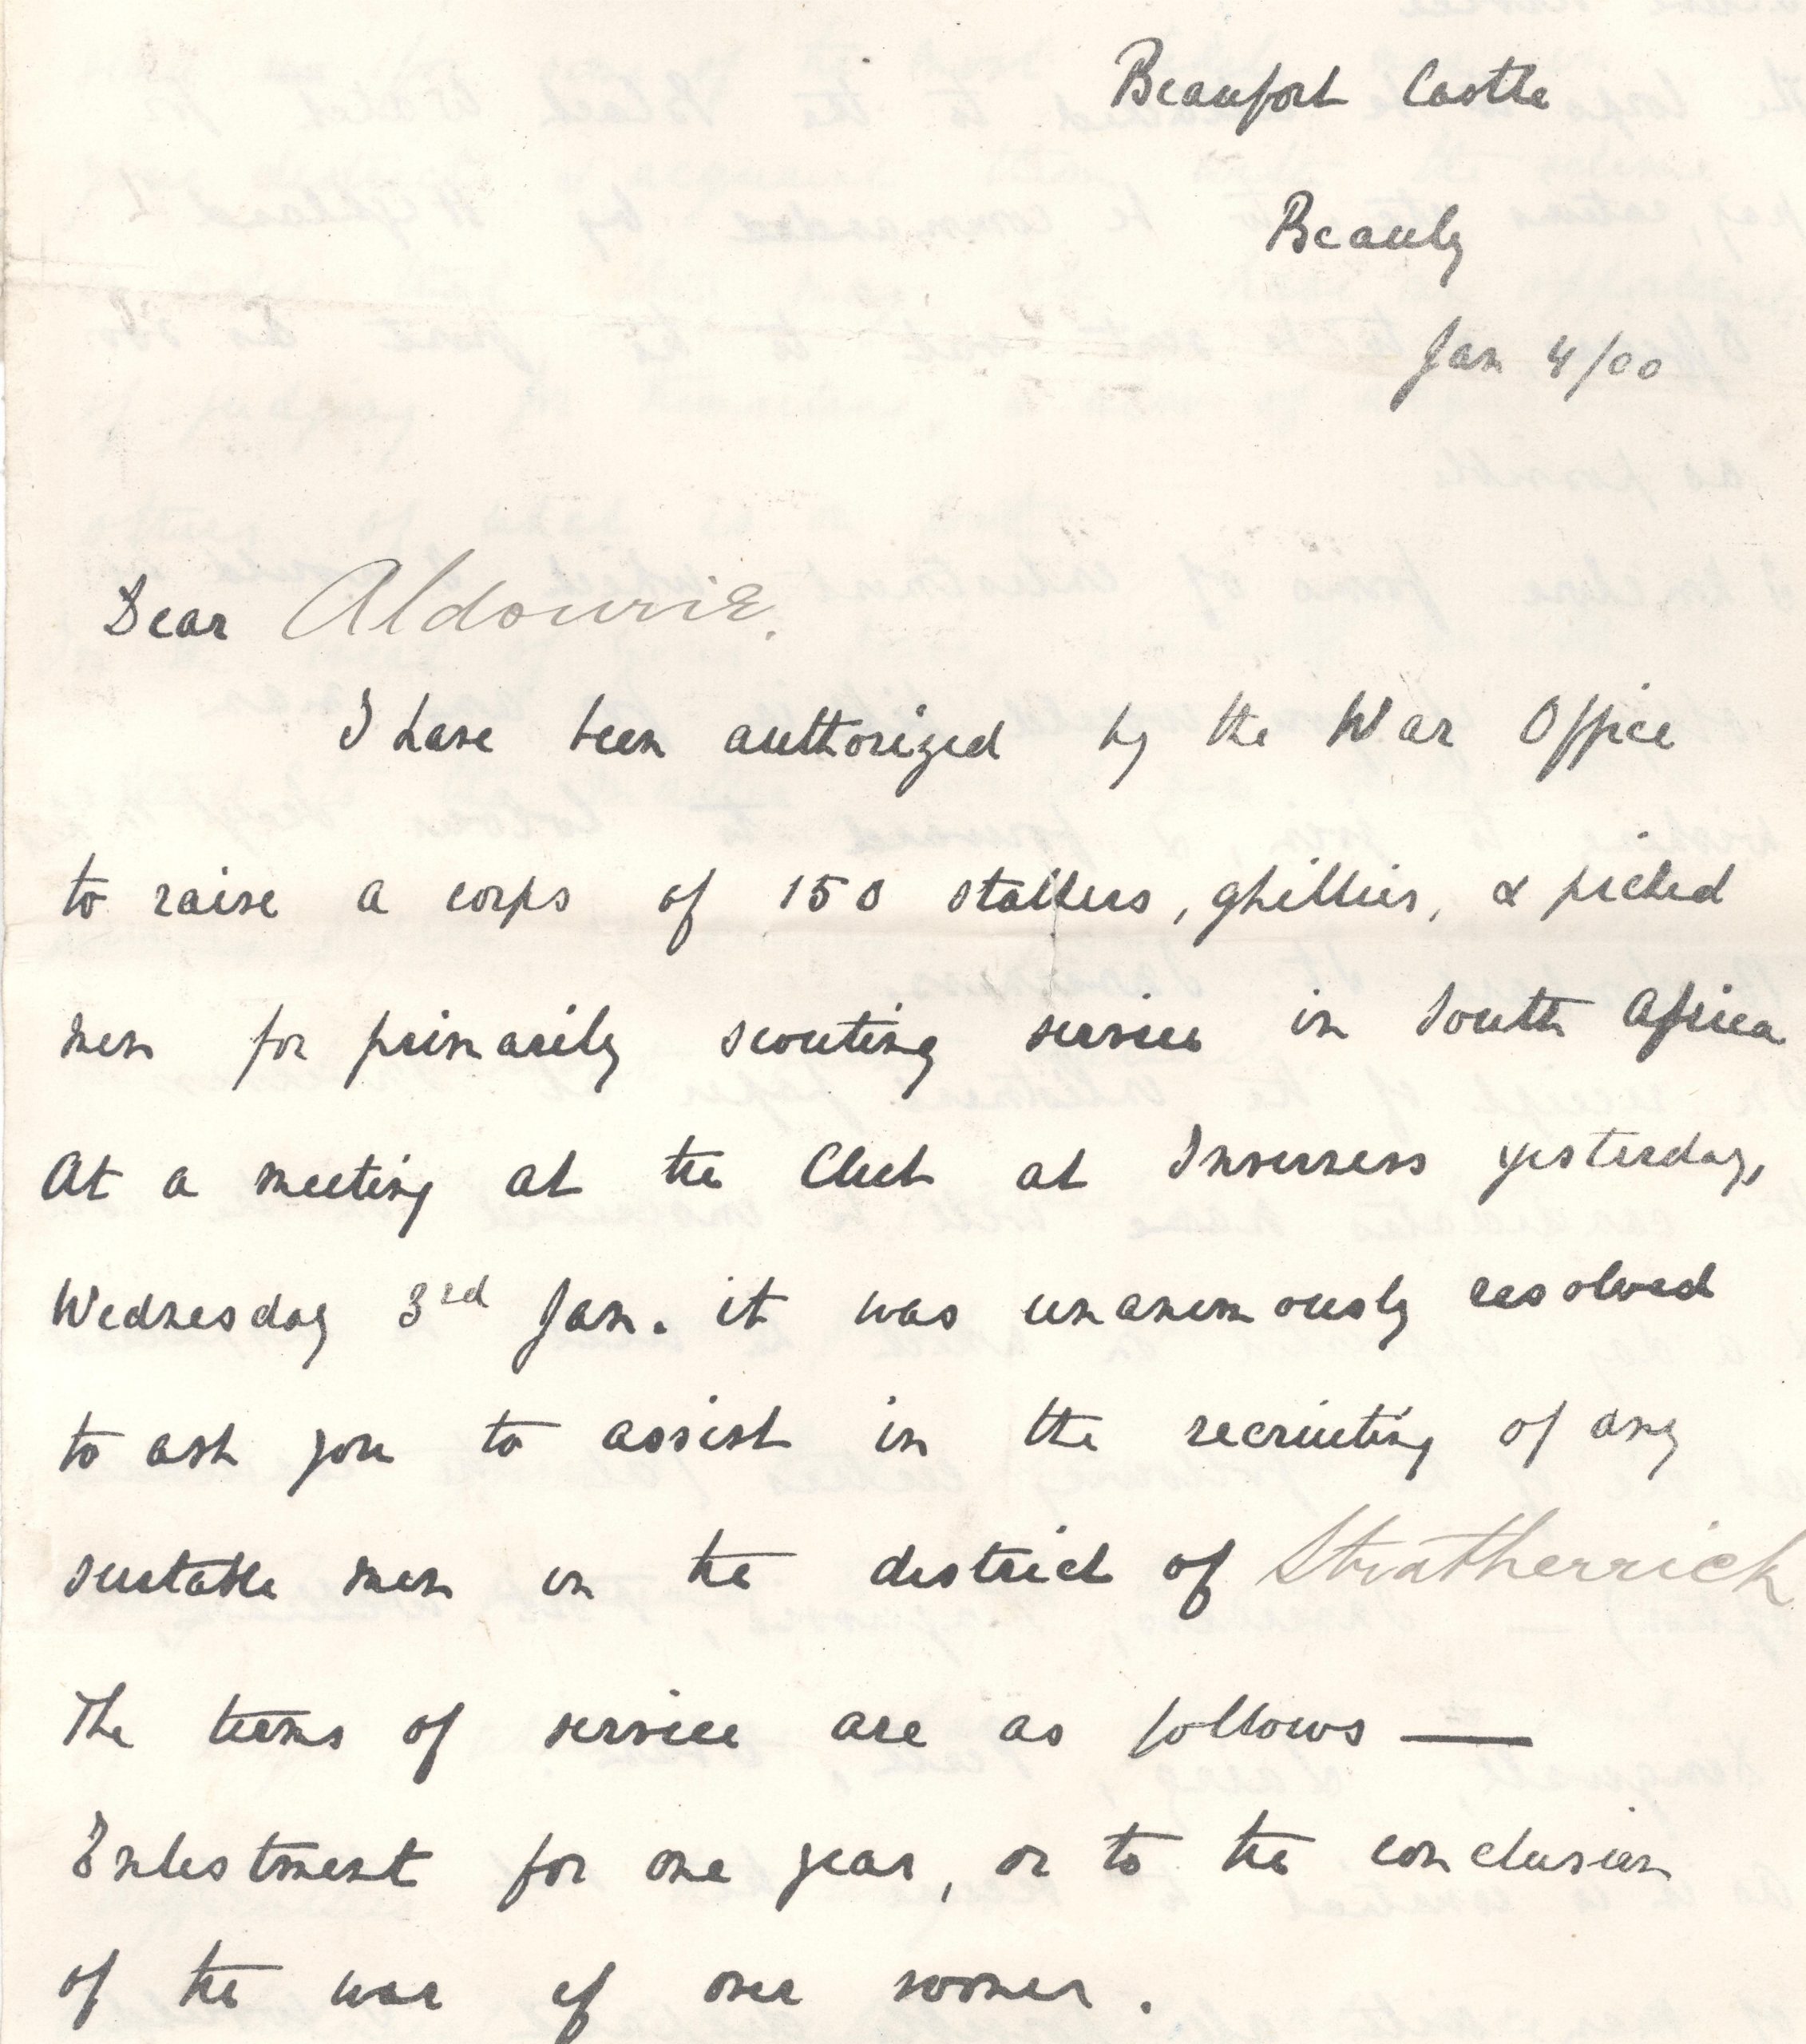 Beaufort Castle
Beauly
Jan 4/00
Dear Aldourie.
I have been authorized by the War Office
to raise a corps of 150 stalkers, ghillies, & picked
men for primarily scouting service in South Africa
At a meeting at the Club at Inverness yesterday,
Wednesday 3rd Jan. it was unanimously resolved
to ask you to assist in the recruiting of any
suitable men in the district of Stratherrick
The terms of service are as follows —
Enlistment for one year, or to the conclusion
of the war if over sooner.